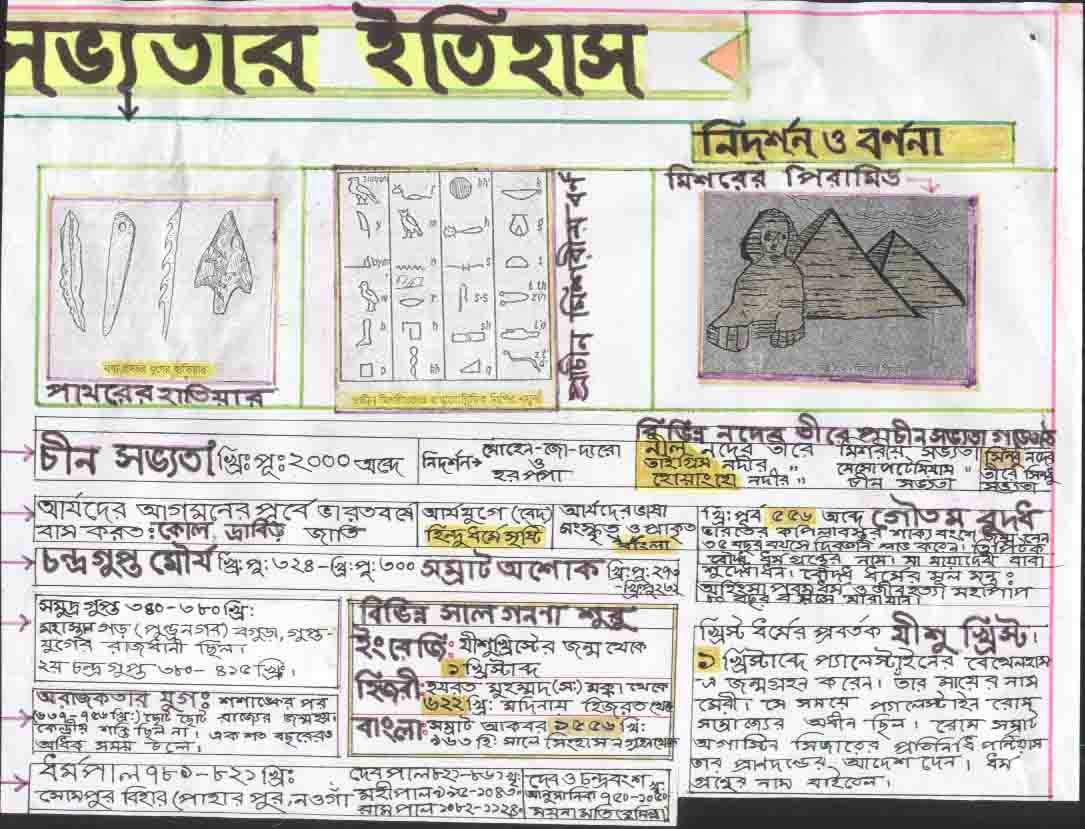 সভ্যতার ইতিহাস
নিদর্শন ও বর্ণনা
মিশরের পিরামিড
পাথরের হাতিয়ার
প্রাচীন মিশরীয় বর্ণ
বিভিন্ন নদের তীরে প্রাচীন সভ্যতা
চীন সভ্যতা খ্রিঃপূঃ ২০০০ অব্দে
নিদর্শন মোহেন-জো-দারো
ও
হরপ্পা
নীল নদের তীরে মিশরীয় সভ্যতা
তাইগ্রিস নদীর " মেসোপটেমিয়াম "
হোয়াংহো নদীর " চীন সভ্যতা
সিন্ধু নদের
তীরে সিন্ধু
সভ্যতা
আর্যদের আগমনের পূর্বে ভারতবর্ষে
বাস করত: কোল, দ্রাবিড় জাতি
আর্যযুগে (বেদ)
হিন্দুধর্মে সৃষ্টি
আর্যদের ভাষা
সংস্কৃত ও প্রাকৃত
বাংলা
খ্রিঃ পূর্ব ৫৫৬ অব্দে গৌতম বুদ্ধ
ভারতের কপিলাবস্তুর শাক্য বংশে জন্ম নেন
৩৫ বছর বয়সে দিব্যজ্ঞান লাভ করেন। ত্রিপিটক
বৌদ্ধ ধর্ম গ্রন্থের নাম। মা মায়াদেবী বাবা
শুদ্ধোধন। বৌদ্ধ ধর্মের মূল মন্ত্র:
অহিংসা পরমধর্ম ও জীবহত্যা মহাপাপ
৮০ বছর বয়সে মারা যান।
চন্দ্রগুপ্ত মৌর্য খ্রিঃপূঃ ৩২৪-খ্রিঃপূঃ ৩০০ সম্রাট অশোক খ্রিঃপূঃ
সমুদ্র গুপ্ত ৩৪০-৩৮০ খ্রিঃ
মহাস্থান গড় (পুন্ড্রনগর) বগুড়া, গুপ্ত-
যুগের রাজধানী ছিল।
২য় চন্দ্র গুপ্ত ৩৮০-৪১৫ খ্রিঃ।
অরাজকতার যুগ: শশাঙ্কের পর
ছোট ছোট রাজ্যের
শক্তি ছিল না। একশত বছরেরও
অধিক সময় চলে।
বিভিন্ন সাল গননা শুরু
ইংরেজি: যীশুখ্রিস্টের জন্ম থেকে
১ খ্রিস্টাব্দে
হিজরী: হযরত মুহম্মদ (সঃ) মক্কা থেকে
৬২২ খ্রিঃ মদিনায় হিজরত থেকে
বাংলা: সম্রাট আকবর ১৫৫৬ খ্রিঃ
৯৬৩ হিঃ সালে সিংহাসন গ্রহণ থেকে
খ্রিস্ট ধর্মের প্রবর্তক যীশু খ্রিস্ট।
১ খ্রিস্টাব্দে প্যালেস্টাইনের বেথেলহাম
এ জন্মগ্রহন করেন। তাঁর মায়ের নাম
মেরী। সে সময়ে প্যালেস্টাইন রোম
সাম্রাজ্যের অধীন ছিল। রোম সম্রাট
অগাস্টিন সিজারের প্রতিনিধি
তার প্রানদন্ডের আদেশ দেন। ধর্ম
গ্রন্থের নাম বাইবেল।
ধর্মপাল ৭৮১-৮২১ খ্রিঃ
সোমপুর বিহার (পাহারপুর, নওগাঁ
দেবপাল ৮২১-৮৬১ খ্রিঃ
মহীপাল ৯৯৫-১০৪৩
রামপাল ১০৮২-১১২৪
দেব ও চন্দ্রবংশ
আনুমানিক ৭৫০-১০৫০
ময়নামতি (কুমিল্লা)